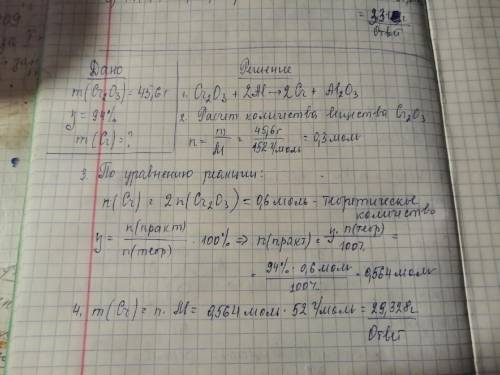 Ответ
Дано
m(Cr₂O₃)=45,6г
y=94%
m(Cr)=?
Решение
1. Cr₂O₃ + 2Al → 2Cr + Al₂O₃
2. Расчет количества вещества Cr₂O₃
n = m/M = 45,6г/152 г/моль = 0,3 моль
3. По уравнению реакции:
n(Cr) = 2n(Cr₂O₃) = 0,6 моль - теоретическое
количество
y = n(практ)/n(теор) · 100% ⇒ n(практ) = y·n(теор)/100% =
= 94% · 0,6 моль/100% = 0,564 моль
4. m(Cr) = n · M = 0,564 моль · 52 г/моль = 29,328г
Ответ